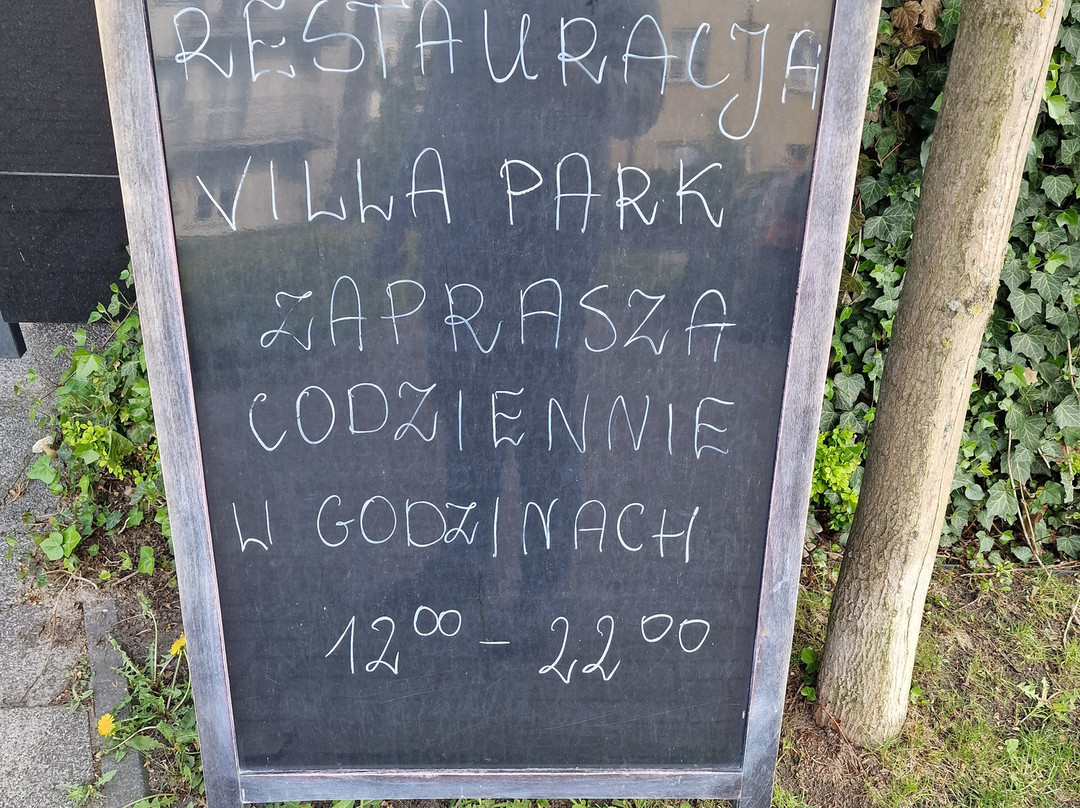 RESTAURACJA
VILLA PARK
ZAPRASZA
CODZIENNIE
W GODZINACH
12⁰⁰ – 22⁰⁰